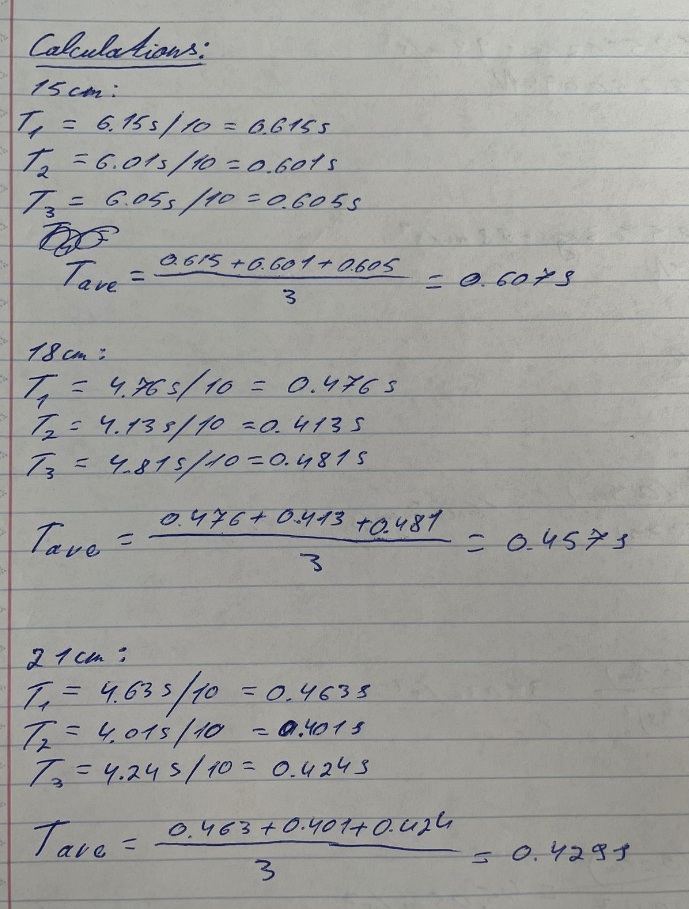 Calculations:
15cm:
T₁ = 6.15s/10 = 0.615s
T₂ = 6.01s/10 = 0.601s
T₃ = 6.05s/10 = 0.605s
Tave = (0.615 + 0.601 + 0.605)/3 = 0.607s
18cm:
T₁ = 4.76s/10 = 0.476s
T₂ = 4.13s/10 = 0.413s
T₃ = 4.81s/10 = 0.481s
Tave = (0.476 + 0.413 + 0.481)/3 = 0.457s
21cm:
T₁ = 4.63s/10 = 0.463s
T₂ = 4.01s/10 = 0.401s
T₃ = 4.24s/10 = 0.424s
Tave = (0.463 + 0.401 + 0.424)/3 = 0.429s